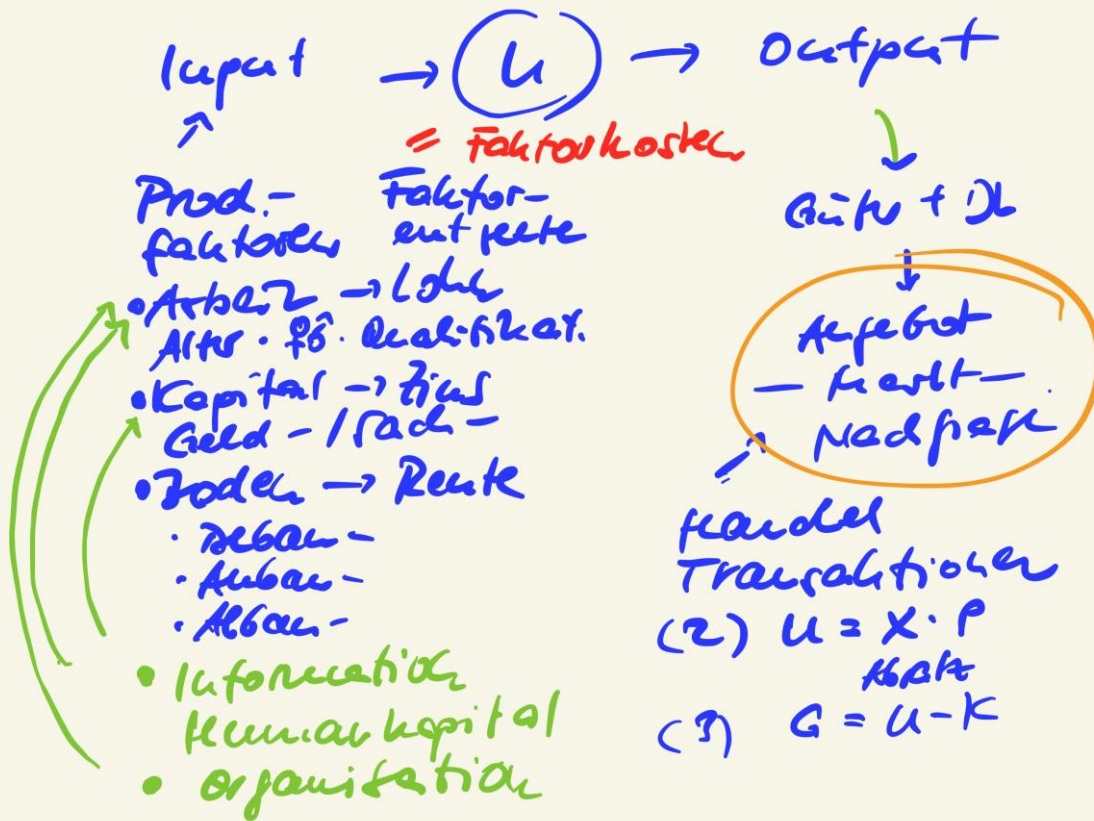 Input → U → Output
= Faktorkosten
Prod.- Faktor-
faktoren entgelte
• Arbeit → Lohn
Alter · Qualifikat.
• Kapital → Zins
Geld - / Sach -
• Boden → Rente
· Bebau -
· Anbau -
· Abbau -
• Information
Humankapital
• Organisation
Güter + DL
Angebot
— Markt —
Nachfrage
Handel
Transaktionen
(2) U = X · P
Absatz
(3) G = U - K